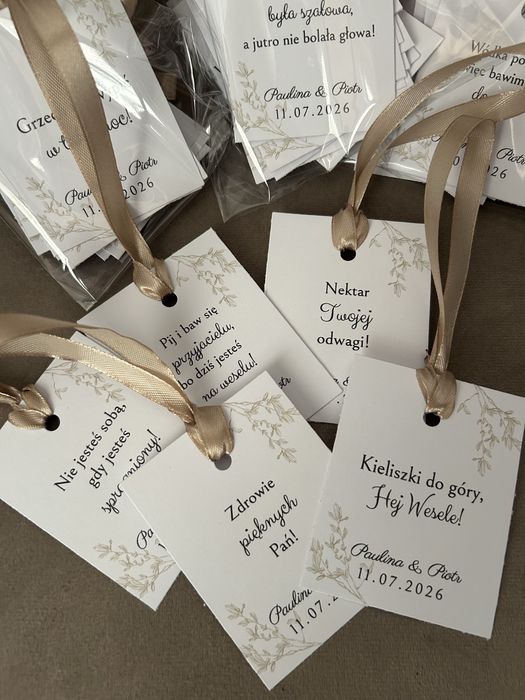 była szalowa,
a jutro nie bolała głowa!
Paulina & Piotr
11.07.2026
Wódka
więc bawim
w
Piotr
2026
Nektar
Twojej
odwagi!
&
Pij i baw się
przyjacielu,
bo dziś jesteś
na weselu!
Nie jesteś sobą,
gdy jesteś
Zdrowie
pięknych
Pań!
11.07.2
Kieliszki do góry,
Hej Wesele!
Paulina & Piotr
11.07.2026